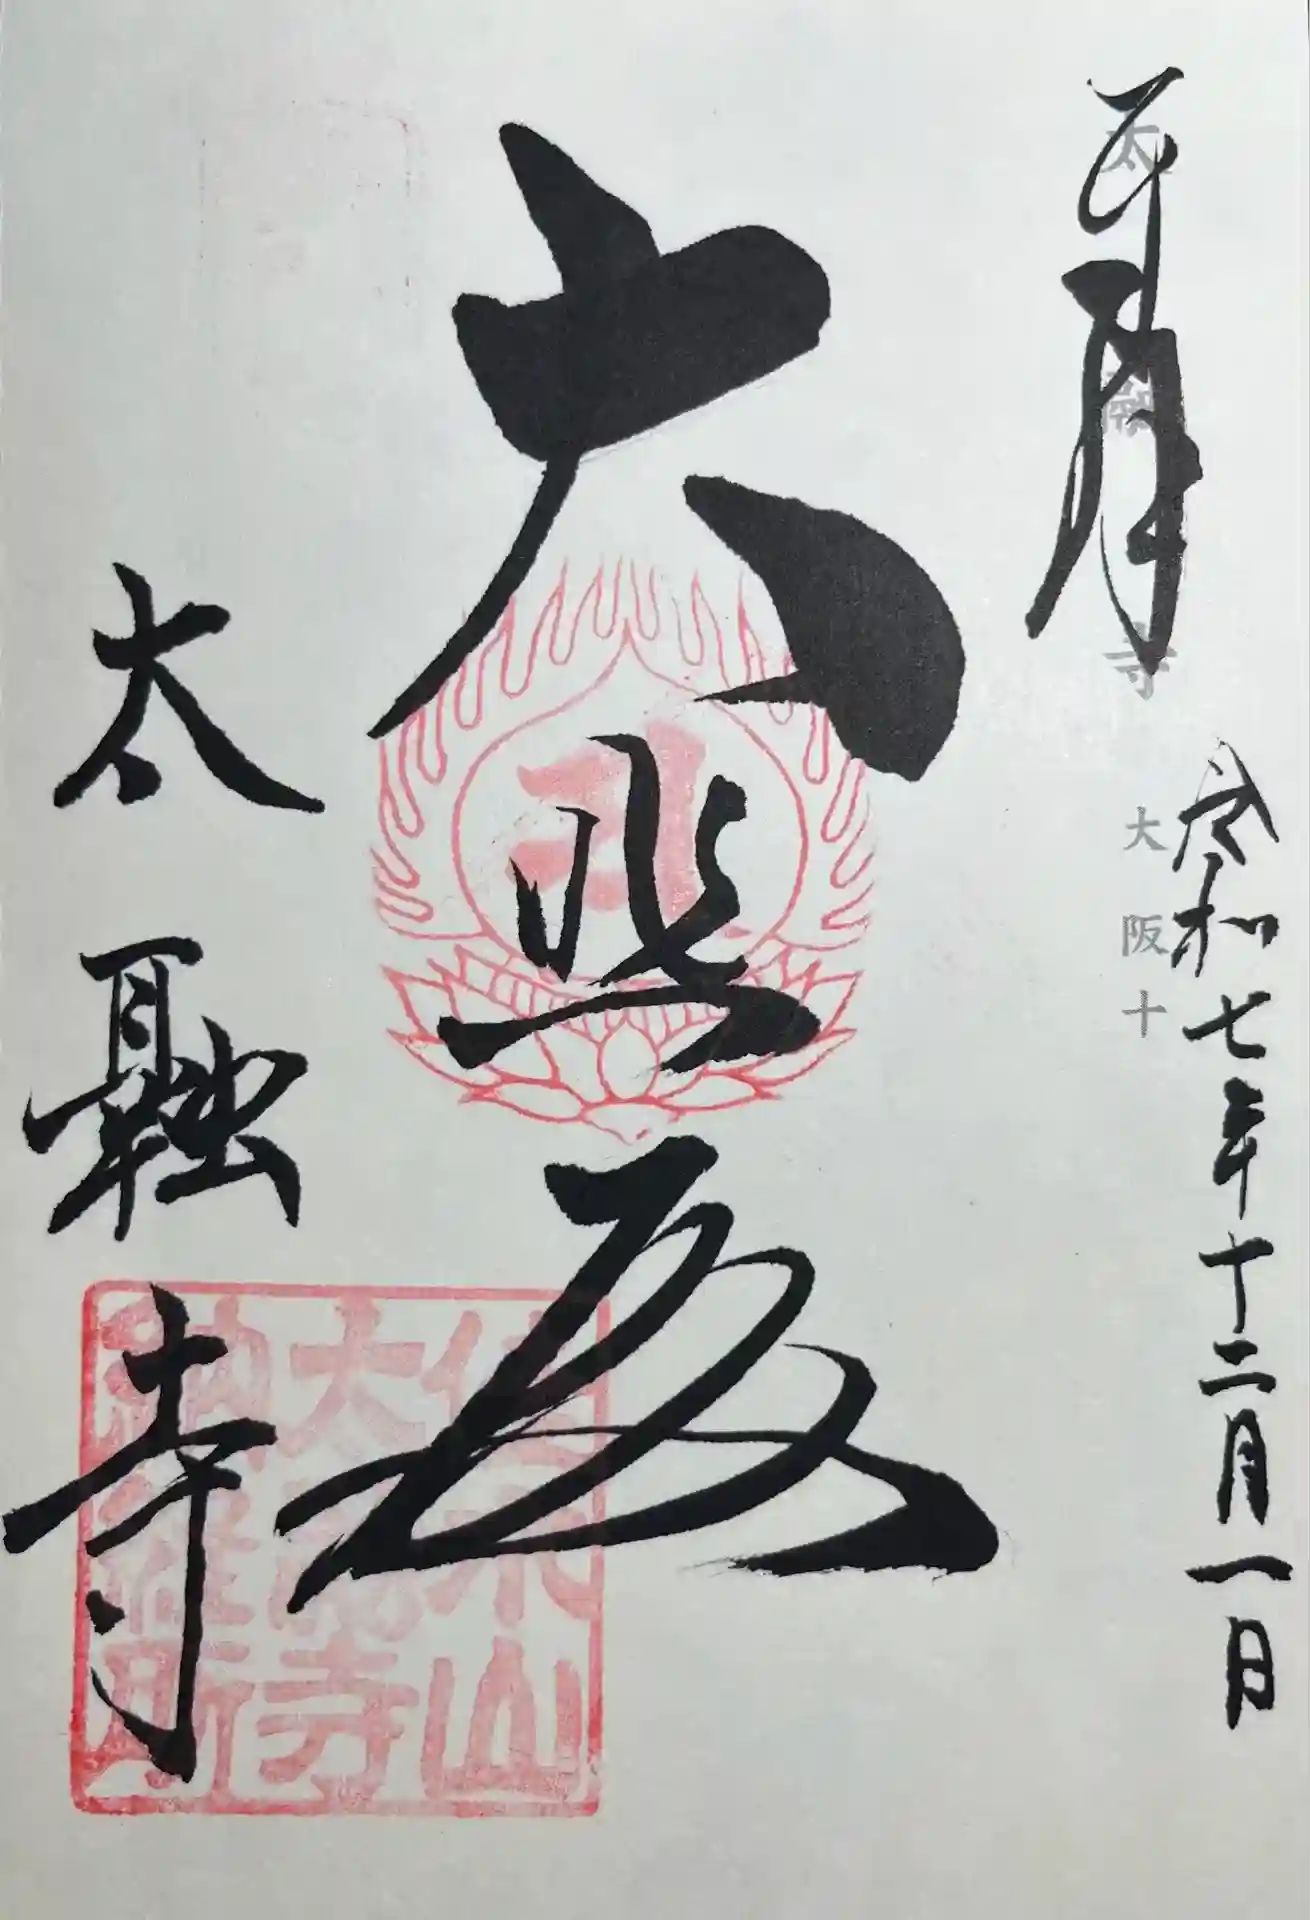 奉拝
太融寺 大阪十
令和七年十二月一日
大悲殿
太融寺
佳木山
太融寺
納経所